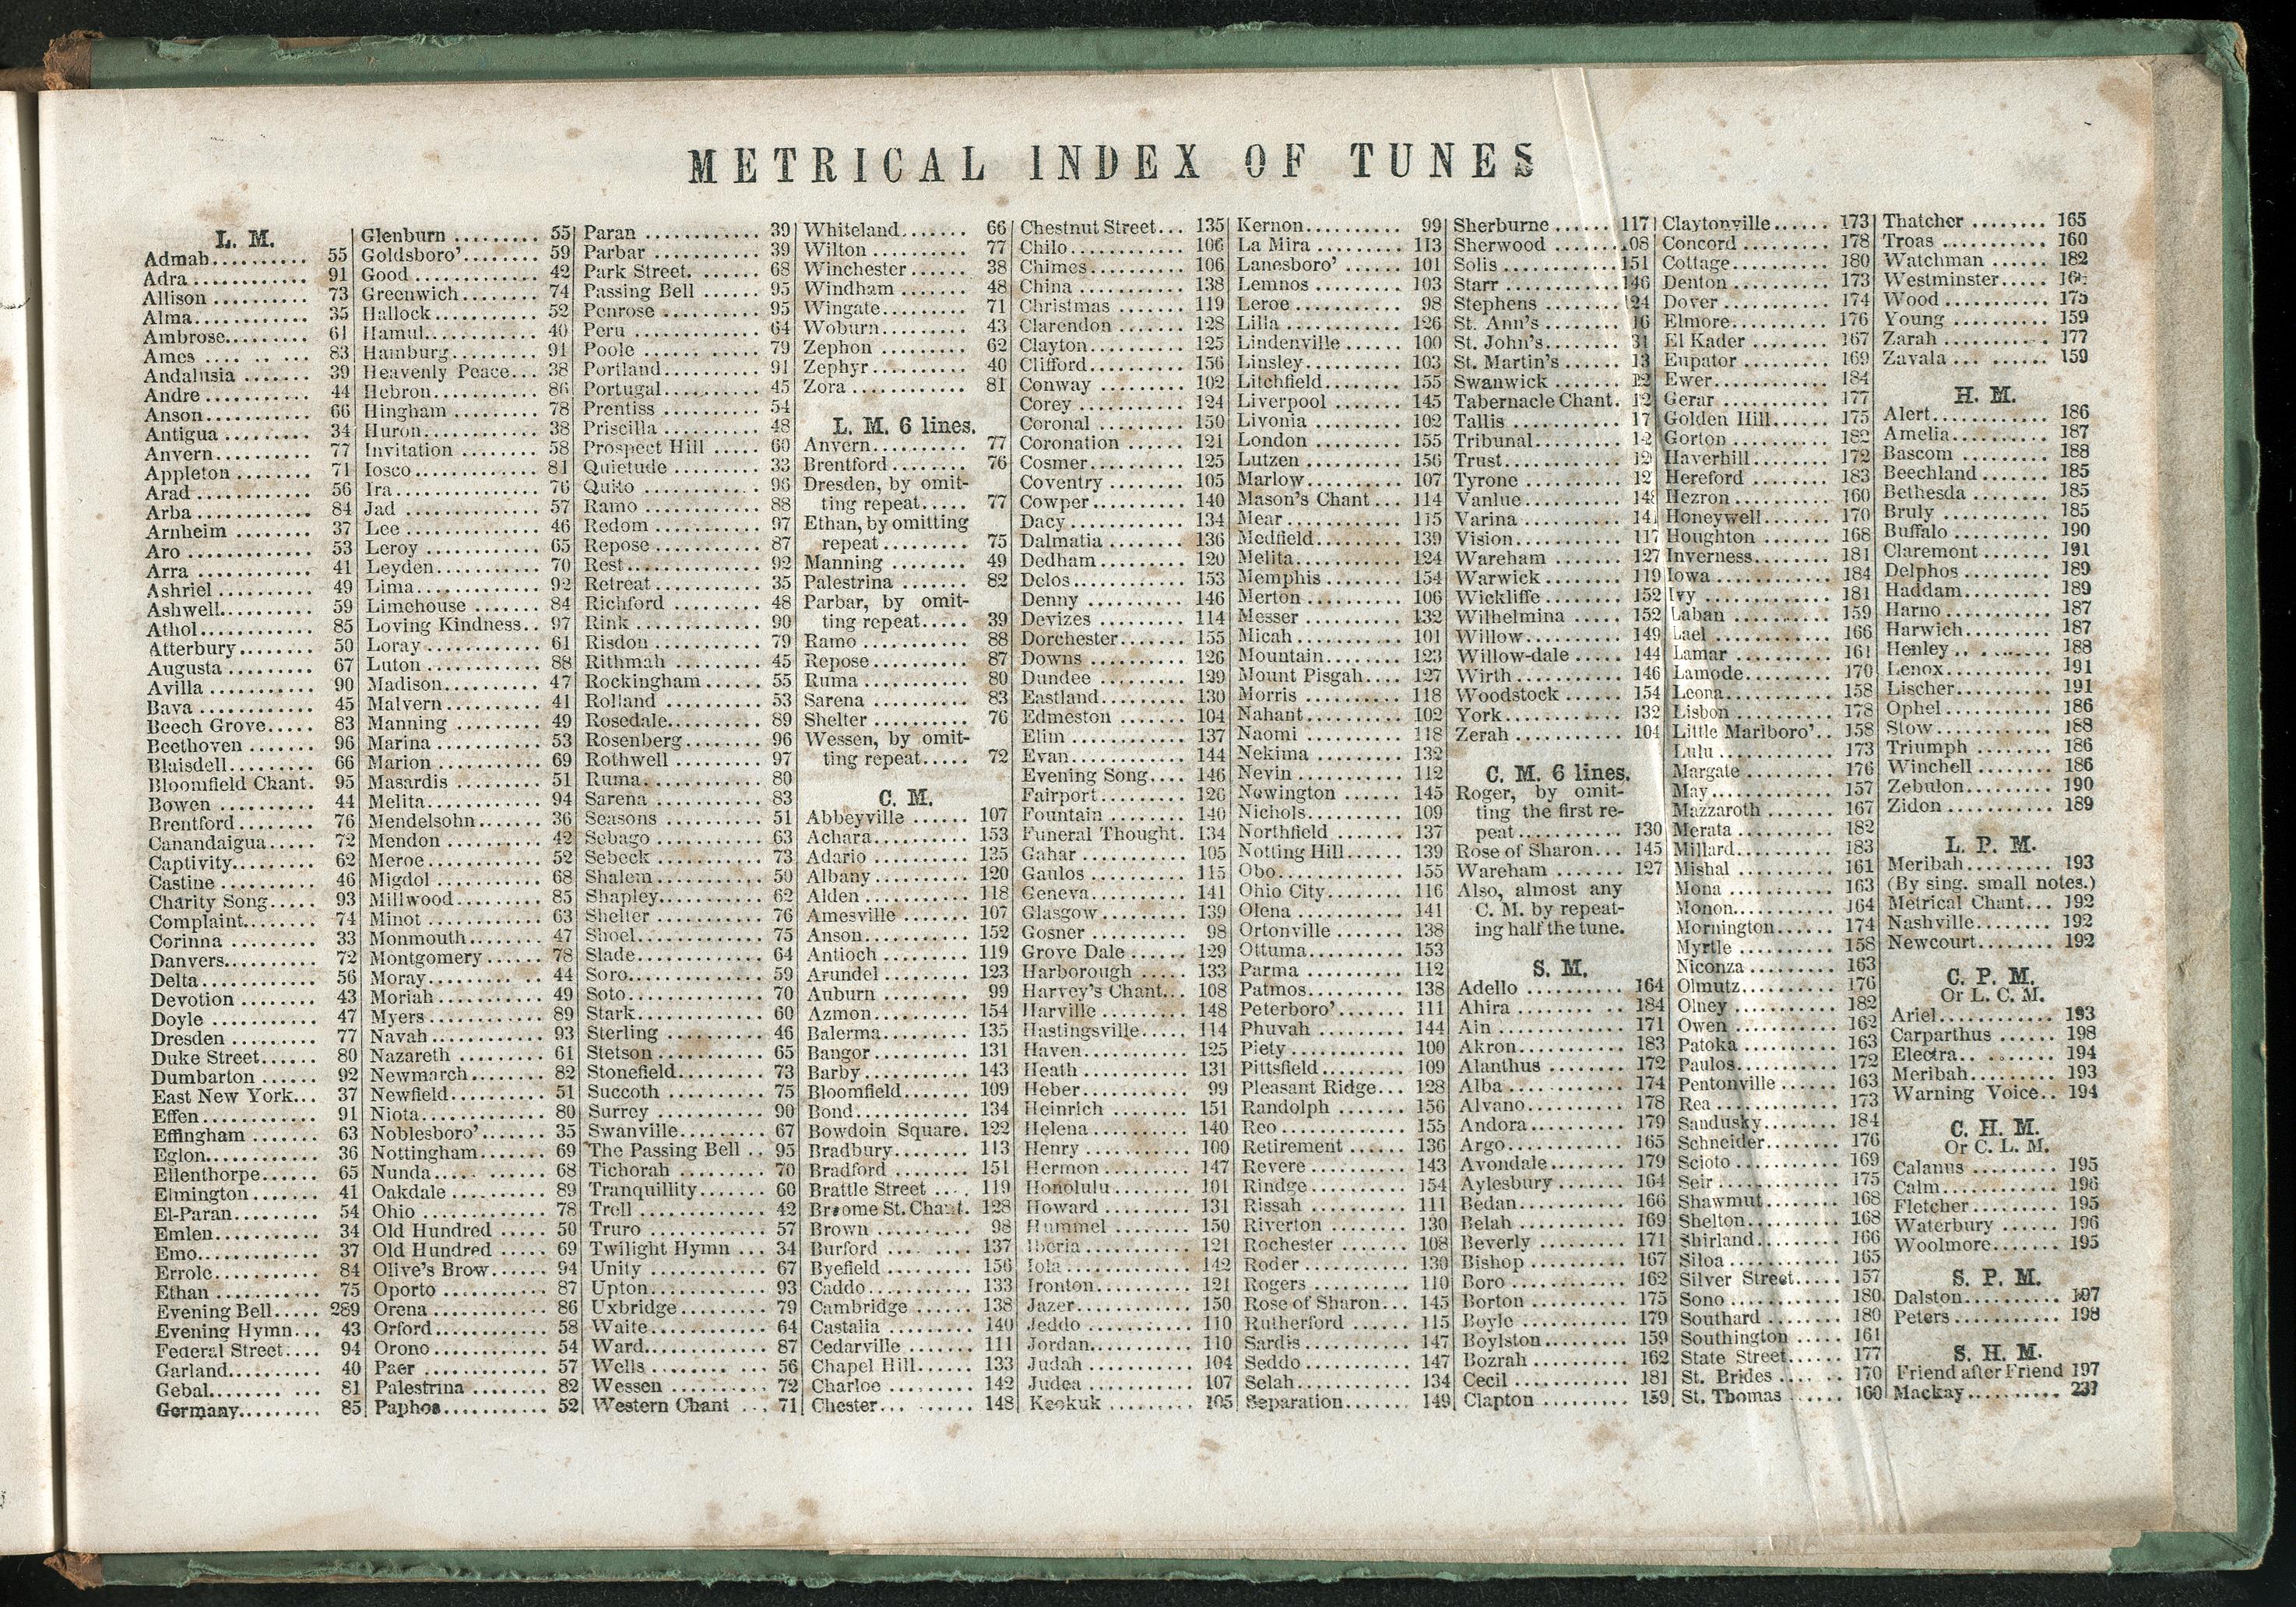 METRICAL INDEX OF TUNES
L. M.
Admah.......... 55
Adra ............ 91
Allison .......... 73
Alma............ 35
Ambrose......... 61
Ames .... .. ... 83
Andalusia ....... 39
Andre ........... 44
Anson........... 66
Antigua ......... 34
Anvern.......... 77
Appleton ........ 71
Arad ............ 56
Arba ............ 84
Arnheim ........ 37
Aro ............. 53
Arra ............ 41
Ashriel .......... 49
Ashwell.......... 59
Athol............ 85
Atterbury........ 50
Augusta ......... 67
Avilla ........... 90
Bava ............ 45
Beech Grove..... 83
Beethoven ....... 96
Blaisdell......... 66
Bloomfield Chant. 95
Bowen .......... 44
Brentford........ 76
Canandaigua..... 72
Captivity......... 62
Castine .......... 46
Charity Song..... 93
Complaint........ 74
Corinna ......... 33
Danvers.......... 72
Delta ............ 56
Devotion ........ 43
Doyle ........... 47
Dresden ......... 77
Duke Street...... 80
Dumbarton ...... 92
East New York... 37
Effen ............ 91
Effingham ....... 63
Eglon............ 36
Ellenthorpe...... 65
Elmington ....... 41
El-Paran......... 54
Emlen........... 34
Emo............. 37
Errole............ 84
Ethan ........... 75
Evening Bell..... 289
Evening Hymn... 43
Federal Street.... 94
Garland.......... 40
Gebal....... ... 81
Germany......... 85
Glenburn ......... 55
Goldsboro'........ 59
Good ............. 42
Greenwich........ 74
Hallock........... 52
Hamul............ 40
Hamburg......... 91
Heavenly Peace... 38
Hebron........... 86
Hingham ......... 78
Huron............ 38
Invitation ........ 58
Iosco............. 81
Ira............... 76
Jad .............. 57
Lee .............. 46
Leroy ............ 65
Leyden........... 70
Lima............. 92
Limehouse ....... 84
Loving Kindness.. 97
Loray ............ 61
Luton ............ 88
Madison.......... 47
Malvern .......... 41
Manning ......... 49
Marina ........... 53
Marion ........... 69
Masardis ......... 51
Melita............ 94
Mendelsohn....... 36
Mendon .......... 42
Meroe............ 52
Migdol ........... 68
Millwood......... 85
Minot ............ 63
Monmouth........ 47
Montgomery...... 78
Moray......... .. 44
Moriah ........... 49
Myers ............ 89
Navah ........... 93
Nazareth ......... 61
Newmarch........ 82
Newfield.......... 51
Niota............. 80
Noblesboro'....... 35
Nottingham....... 69
Nunda........... 68
Oakdale .......... 89
Ohio ............. 78
Old Hundred ..... 50
Old Hundred ..... 69
Olive's Brow...... 94
Oporto ........... 87
Orena ............ 86
Orford............ 58
Orono ............ 54
Paer ............. 57
Palestrina ........ 82
Paphos........... 52
Paran ............ 39
Parbar ........... 39
Park Street. ...... 68
Passing Bell ...... 95
Penrose .......... 95
Peru ............. 64
Poole ............ 79
Portland.......... 91
Portugal.......... 45
Prentiss .......... 54
Priscilla .......... 48
Prospect Hill ..... 60
Quietude ......... 33
Quito ............ 96
Ramo ............ 88
Redom ........... 97
Repose ........... 87
Rest.............. 92
Retreat........... 35
Richford ......... 48
Rink ............. 90
Risdon ........... 79
Rithmah ......... 45
Rockingham...... 55
Rolland .......... 53
Rosedale.......... 89
Rosenberg........ 96
Rothwell ......... 97
Ruma............ 80
Sarena ........... 83
Seasons .......... 51
Sebago ........... 63
Sebeck ........... 73
Shalem........... 50
Shapley........... 62
Shelter ........... 76
Shoel............. 75
Slade............. 64
Soro.............. 59
Soto.............. 70
Stark............. 60
Sterling .......... 46
Stetson ........... 65
Stonefield......... 73
Succoth .......... 75
Surrey ........... 90
Swanville......... 67
The Passing Bell .. 95
Tichorah ......... 70
Tranquillity....... 60
Troll ............. 42
Truro ............ 57
Twilight Hymn ... 34
Unity ............ 67
Upton............ 93
Uxbridge......... 79
Waite............ 64
Ward............. 87
Wells ............ 56
Wessen ........... 72
Western Chant ... 71
Whiteland....... 66
Wilton .......... 77
Winchester...... 38
Windham ....... 48
Wingate......... 71
Woburn......... 43
Zephon ......... 62
Zephyr.......... 40
Zora ............ 81
L. M. 6 lines.
Anvern.......... 77
Brentford ........ 76
Dresden, by omit-
ting repeat..... 77
Ethan, by omitting
repeat.......... 75
Manning ........ 49
Palestrina ....... 82
Parbar, by omit-
ting repeat..... 39
Ramo ........... 88
Repose.......... 87
Ruma........... 80
Sarena .......... 83
Shelter .......... 76
Wessen, by omit-
ting repeat..... 72
C. M.
Abbeyville ...... 107
Achara.......... 153
Adario .......... 135
Albany.......... 120
Alden ........... 118
Amesville ....... 107
Anson........... 152
Antioch ......... 119
Arundel ......... 123
Auburn ......... 99
Azmon.......... 154
Balerma......... 135
Bangor.......... 131
Barby........... 143
Bloomfield....... 109
Bond............ 134
Bowdoin Square. 122
Bradbury........ 113
Bradford ........ 151
Brattle Street .... 119
Broome St. Chant. 128
Brown .......... 98
Burford ......... 137
Byefield ......... 156
Caddo........... 133
Cambridge ...... 138
Castalia ......... 140
Cedarville ....... 111
Chapel Hill...... 133
Charloe ......... 142
Chester... ...... 148
Chestnut Street... 135
Chilo............ 106
Chimes.......... 106
China ........... 138
Christmas ....... 119
Clarendon ....... 128
Clayton.......... 125
Clifford.......... 156
Conway ......... 102
Corey ........... 124
Coronal ......... 150
Coronation ...... 121
Cosmer.......... 125
Coventry ........ 105
Cowper.......... 140
Dacy............ 134
Dalmatia ........ 136
Dedham ......... 120
Delos............ 153
Denny .......... 146
Devizes ......... 114
Dorchester....... 155
Downs .......... 126
Dundee ......... 129
Eastland......... 130
Edmeston ....... 104
Elim ............ 137
Evan............ 144
Evening Song.... 146
Fairport......... 126
Fountain ........ 140
Funeral Thought. 134
Gahar ........... 105
Gaulos .......... 115
Geneva.......... 141
Glasgow......... 139
Gosner .......... 98
Grove Dale ...... 129
Harborough ..... 133
Harvey's Chant... 108
Harville ......... 148
Hastingsville..... 114
Haven........... 125
Heath ........... 131
Heber........... 99
Heinrich ........ 151
Helena .......... 140
Henry ........... 100
Hermon ......... 147
Honolulu ........ 101
Howard ......... 131
Hummel ........ 150
Iberia ........... 121
Iola............. 142
Ironton.......... 121
Jazer............ 150
Jeddo ........... 110
Jordan........... 110
Judah ........... 104
Judea ........... 107
Keokuk ......... 105
Kernon.......... 99
La Mira ......... 113
Lanesboro' ...... 101
Lemnos ......... 103
Leroe ........... 98
Lilia ............ 126
Lindenville ...... 100
Linsley.......... 103
Litchfield........ 155
Liverpool ....... 145
Livonia ......... 102
London ......... 155
Lutzen .......... 156
Marlow.......... 107
Mason's Chant... 114
Mear............ 115
Medfield......... 139
Melita........... 124
Memphis ........ 154
Merton .......... 106
Messer .......... 132
Micah ........... 101
Mountain........ 123
Mount Pisgah.... 127
Morris .......... 118
Nahant.......... 102
Naomi .......... 118
Nekima ......... 132
Nevin ........... 112
Newington ...... 145
Nichols.......... 109
Northfield ....... 137
Notting Hill...... 139
Obo............. 155
Ohio City........ 116
Olena ........... 141
Ortonville ....... 138
Ottuma.......... 153
Parma .......... 112
Patmos.......... 138
Peterboro'....... 111
Phuvah ......... 144
Piety............ 100
Pittsfield........ 109
Pleasant Ridge... 128
Randolph ....... 156
Reo ............. 155
Retirement ...... 136
Revere .......... 143
Rindge.......... 154
Rissah .......... 111
Riverton ........ 130
Rochester ....... 108
Roder ........... 130
Rogers .......... 110
Rose of Sharon... 145
Rutherford ...... 115
Sardis ........... 147
Seddo ........... 147
Selah............ 134
Separation....... 149
Sherburne ...... 117
Sherwood ....... 08
Solis ............ 151
Starr ........... 146
Stephens ........ 124
St. Ann's ........ 16
St. John's........ 31
St. Martin's...... 13
Swanwick .......
Tabernacle Chant. 12
Tallis ........... 17
Tribunal......... 12
Trust............ 12
Tyrone .......... 12
Vanlue.......... 14
Varina .......... 14
Vision........... 117
Wareham ....... 127
Warwick ........ 119
Wickliffe ........ 152
Wilhelmina ..... 152
Willow.......... 149
Willow-dale ..... 144
Wirth ........... 146
Woodstock ...... 154
York ............ 132
Zerah ........... 104
C. M. 6 lines.
Roger, by omit-
ting the first re-
peat........... 130
Rose of Sharon... 145
Wareham ....... 127
Also, almost any
C. M. by repeat-
ing half the tune.
S. M.
Adello .......... 164
Ahira ........... 184
Ain ............. 171
Akron........... 183
Alanthus ........ 172
Alba ............ 174
Alvano.......... 178
Andora.......... 179
Argo............ 165
Avondale........ 179
Aylesbury ....... 164
Bedan........... 166
Belah ........... 169
Beverly ......... 171
Bishop .......... 167
Boro ............ 162
Borton .......... 175
Boyle ........... 179
Boylston......... 159
Bozrah .......... 162
Cecil ............ 181
Clapton ......... 159
Claytonville...... 173
Concord ......... 178
Cottage.......... 180
Denton .......... 173
Dover ........... 174
Elmore.......... 176
El Kader ........ 167
Eupator ......... 169
Ewer............ 184
Gerar ........... 177
Golden Hill...... 175
Gorton .......... 182
Haverhill........ 172
Hereford ........ 183
Hezron.......... 160
Honeywell....... 170
Houghton ....... 168
Inverness........ 181
Iowa ............ 184
Ivy ............. 181
Laban .......... 159
Lael ............ 166
Lamar .......... 161
Lamode......... 170
Leona........... 158
Lisbon .......... 178
Little Marlboro'.. 158
Lulu ............ 173
Margate ......... 176
May............. 157
Mazzaroth ...... 167
Merata .......... 182
Millard.......... 183
Mishal .......... 161
Mona ........... 163
Monon.......... 164
Mornington...... 174
Myrtle .......... 158
Niconza ......... 163
Olmutz.......... 176
Olney ........... 182
Owen ........... 162
Patoka .......... 163
Paulos........... 172
Pentonville ...... 163
Rea ............. 173
Sandusky........ 184
Schneider........ 176
Scioto ........... 169
Seir ............. 175
Shawmut........ 168
Shelton.......... 168
Shirland......... 166
Siloa ............ 165
Silver Street..... 157
Sono ............ 180
Southard ........ 180
Southington ..... 161
State Street...... 177
St. Brides ....... 170
St. Thomas ...... 160
Thatcher ........ 165
Troas ........... 160
Watchman ...... 182
Westminster.....
Wood ........... 175
Young .......... 159
Zarah ........... 177
Zavala ... ...... 159
H. M.
Alert............ 186
Amelia.......... 187
Bascom ......... 188
Beechland....... 185
Bethesda ........ 185
Bruly ........... 185
Buffalo .......... 190
Claremont ....... 191
Delphos ......... 189
Haddam......... 189
Harno........... 187
Harwich......... 187
Henley.. ....... 188
Lenox........... 191
Lischer.......... 191
Ophel........... 186
Stow............ 188
Triumph ........ 186
Winchell ........ 186
Zebulon......... 190
Zidon ........... 189
L. P. M.
Meribah......... 193
(By sing. small notes.)
Metrical Chant... 192
Nashville........ 192
Newcourt........ 192
C. P. M.
Or L. C. M.
Ariel............ 193
Carparthus ...... 198
Electra.. ....... 194
Meribah......... 193
Warning Voice.. 194
C. H. M.
Or C. L. M.
Calanus ......... 195
Calm............ 196
Fletcher......... 195
Waterbury ...... 196
Woolmore....... 195
S. P. M.
Dalston.......... 197
Peters........... 198
S. H. M.
Friend after Friend 197
Mackay.......... 237